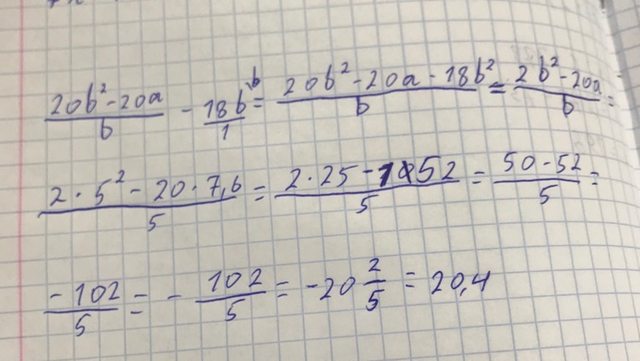 (20b² - 20a)/b - 18b/1 ^b = (20b² - 20a - 18b²)/b = (2b² - 20a)/b =
(2 · 5² - 20 · 7,6)/5 = (2 · 25 - 152)/5 = (50 - 52)/5 =
-102/5 = - 102/5 = -20 2/5 = 20,4